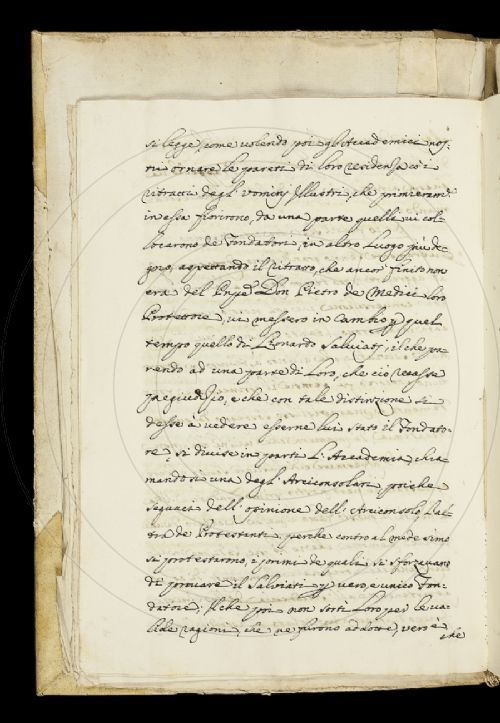 si legge, come volendo poi gl'Accademici nos-
tri ornare le pareti di loro residenza co i
ritratti degl'uomini Illustri, che primieram.te
in essa fiorirono, da una parte quelli vi col-
locarono de Fondatori, in altro luogo più de-
gno, aspettando il ritratto, che ancor finito non
era del Don Pietro de Medici loro
Protettore, vi messero in cambio p quel
tempo quello di Leonardo Salviati, il che pa-
rendo ad una parte di loro, che ciò recasse
pregiudizio, e che con tale distinzione si
desse à vedere esserne lui stato il Fondato-
re, si divise in parti l'Accademia, chia
mandosi una degl'Arciconsolari poiche
seguace dell'opinione dell'Arciconsolo, l'al-
tra de Protestanti, perche contro al medesimo
si protestarono, i primi de quali si sforzavano
di provare il Salviati p vero, e unico Fon-
datore; Il che poi non sortì loro per le va-
lide ragioni, che ne furono addotte, vero è
che